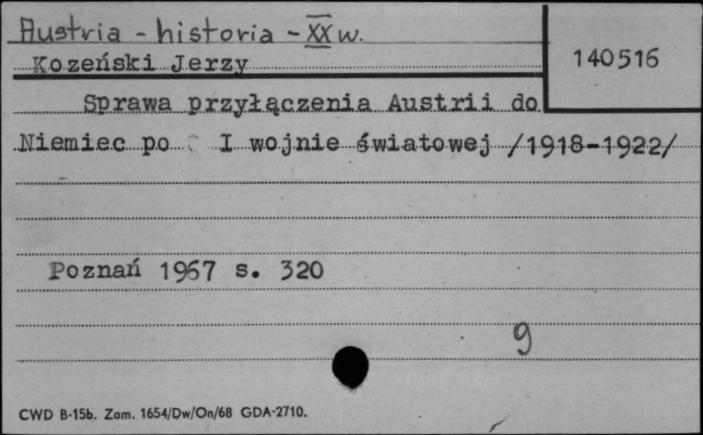 Austria - historia - XX w.
Kozeński Jerzy
140516
Sprawa przyłączenia Austrii do
Niemiec po I wojnie światowej /1918-1922/
Poznań 1967 s. 320
9
CWD B-15b. Zam. 1654/Dw/On/68 GDA-2710.